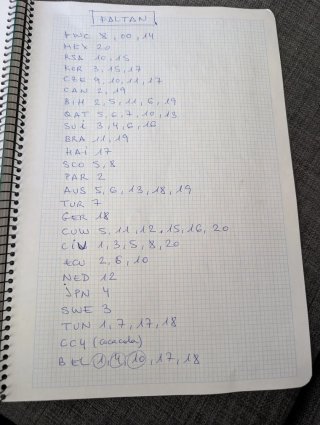 FALTAN
FWC 8, 00, 14
MEX 20
RSA 10, 15
KOR 3, 15, 17
CZE 9, 10, 11, 17
CAN 2, 19
BIH 2, 5, 11, 6, 19
QAT 5, 6, 7, 10, 13
SUI 3, 4, 6, 16
BRA 11, 19
HAI 17
SCO 5, 8
PAR 2
AUS 5, 6, 13, 18, 19
TUR 7
GER 18
CUW 5, 11, 12, 15, 16, 20
CIV 1, 3, 5, 8, 20
ECU 2, 8, 10
NED 12
JPN 4
SWE 3
TUN 1, 7, 17, 18
CC4 (cocacola)
BEL 1, 4, 10, 17, 18